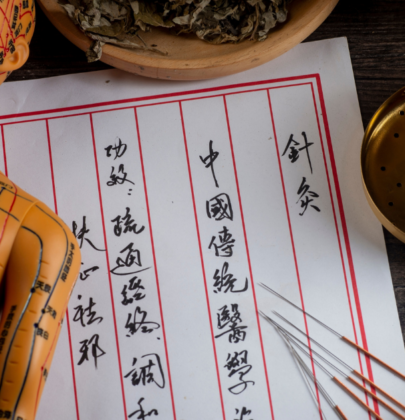 針灸
中國傳統醫學
功效：疏通經絡、調和
扶正祛邪